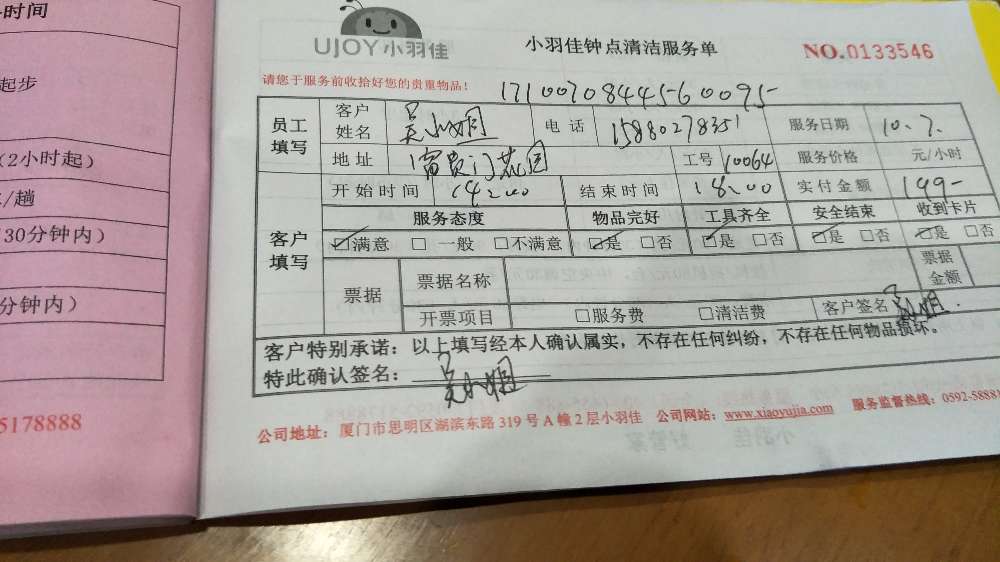 时间
起步
(2小时起)
/趟
30分钟内)
分钟内)
5178888
UJOY小羽佳
小羽佳钟点清洁服务单
NO.0133546
请您于服务前收拾好您的贵重物品!
1710070844560095
员工填写 客户姓名 吴小姐 电话 15880278351 服务日期 10.7.
地址 富贵门花园 工号 10064 服务价格 元/小时
客户填写 开始时间 14:00 结束时间 18:00 实付金额 199-
服务态度 物品完好 工具齐全 安全结束 收到卡片
☑满意 □一般 □不满意 ☑是 □否 ☑是 □否 ☑是 □否 ☑是 □否
票据 票据名称 票据金额
开票项目 □服务费 □清洁费 客户签名 吴小姐.
客户特别承诺:以上填写经本人确认属实,不存在任何纠纷,不存在任何物品损坏。
特此确认签名: 吴小姐
公司地址:厦门市思明区湖滨东路 319 号 A 幢 2 层小羽佳 公司网站:www.xiaoyujia.com 服务监督热线:0592-58881